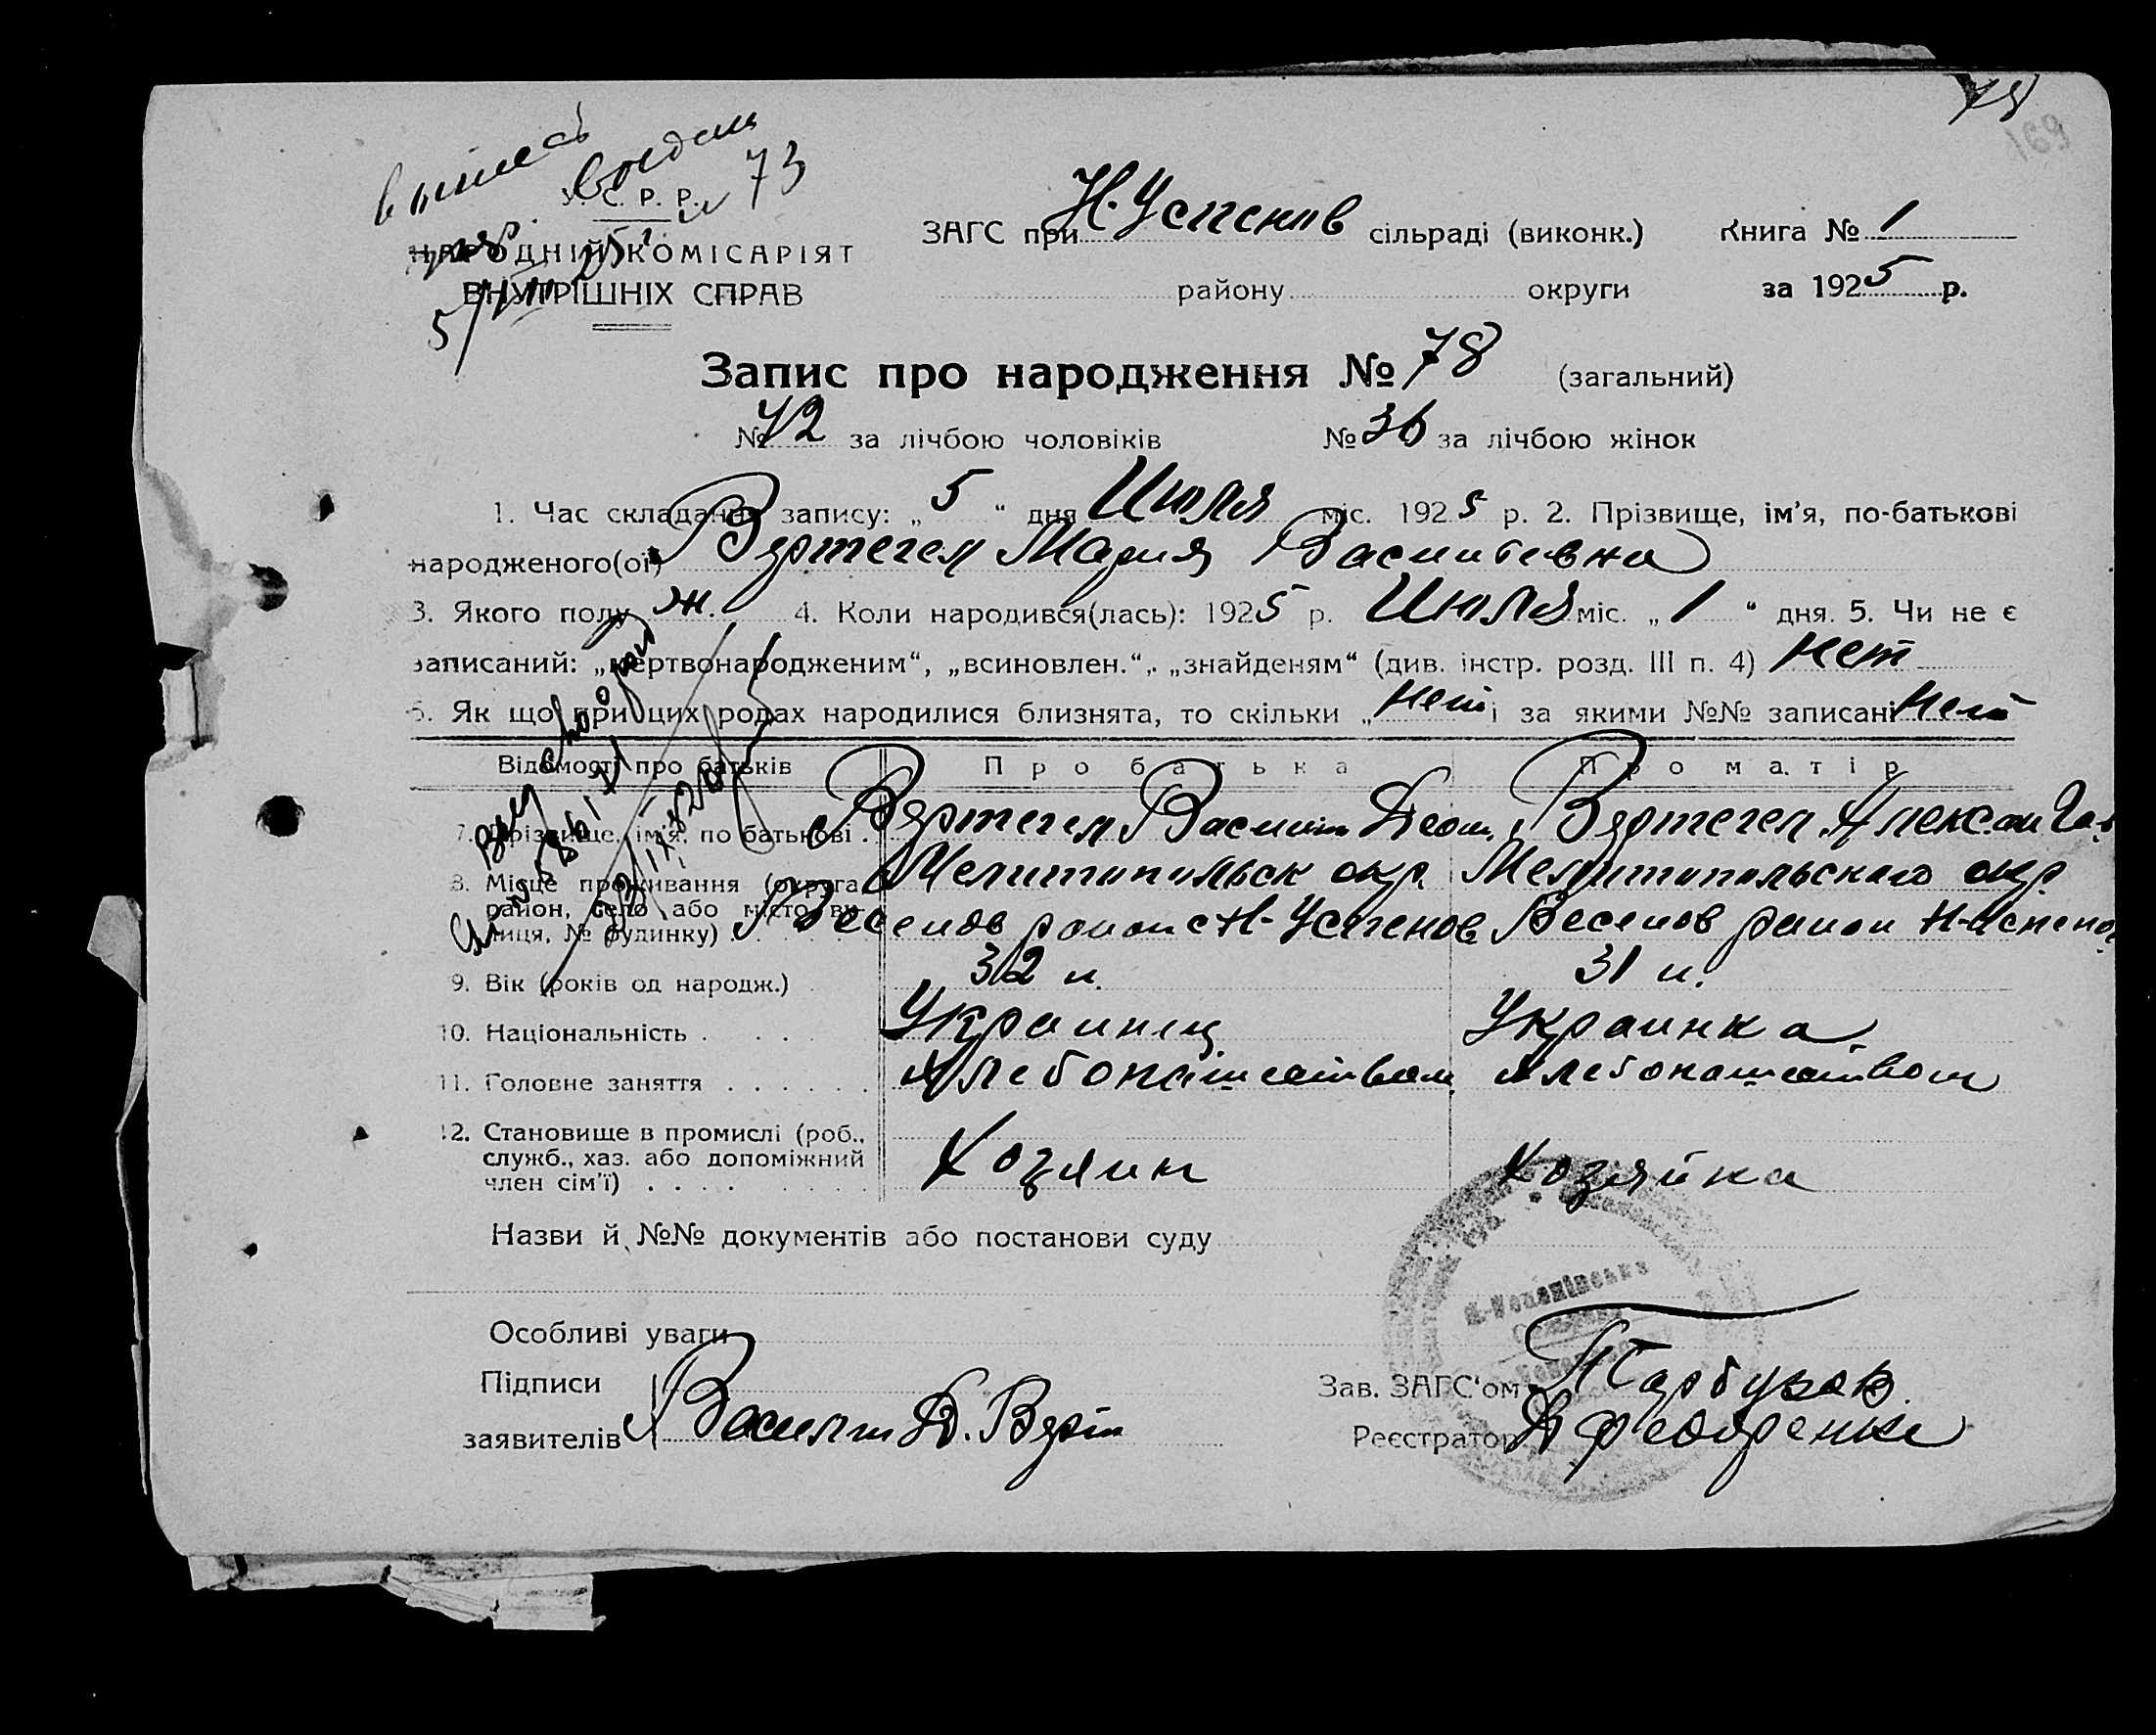 78
169
выпись
выдана
У. С. Р. Р.
73
НАРОДНІЙ КОМІСАРІЯТ
ВНУТРІШНІХ СПРАВ
ЗАГС при Н. Успенов сільраді (виконк.) Книга № 1
району округи за 1925 р.
Запис про народження № 78 (загальний)
№ 42 за лічбою чоловіків № 36 за лічбою жінок
1. Час складання запису: „5“ дня Июля міс. 1925 р. 2. Прізвище, ім'я, по-батькові
народженого(ої) Вертегел Мария Васильевна
3. Якого полу ж. 4. Коли народився(лась): 1925 р. Июля міс. „1“ дня. 5. Чи не є
записаний: „мертвонародженим“, „всиновлен.“, „знайденям“ (див. інстр. розд. III п. 4) нет
6. Як що при цих родах народилися близнята, то скільки „нет і за якими №№ записані нет
Відомості про батьків Про батька Про матір
7. Прізвище, ім'я, по батькові . Вертегел Василий Вертегел Александ
8. Місце проживання (округа Мелитопольск окр. Мелитопольского окр.
район, село або місто, ву-
лиця, № будинку) . Веселов район с Н-Успенов Веселов район Н-Успено
9. Вік (років од народж.) . 32 л. 31 л.
10. Національність . . . . Украинец Украинка
11. Головне заняття . . . . . . Хлебопашеством Хлебопашеством
12. Становище в промислі (роб.,
служб., хаз. або допоміжний
член сім'ї) . . . . Хозяин Хозяйка
Назви й №№ документів або постанови суду
Особливі уваги
Підписи
заявителів Василий Д. Верт
Зав. ЗАГС'ом
Реєстратор Федоренко